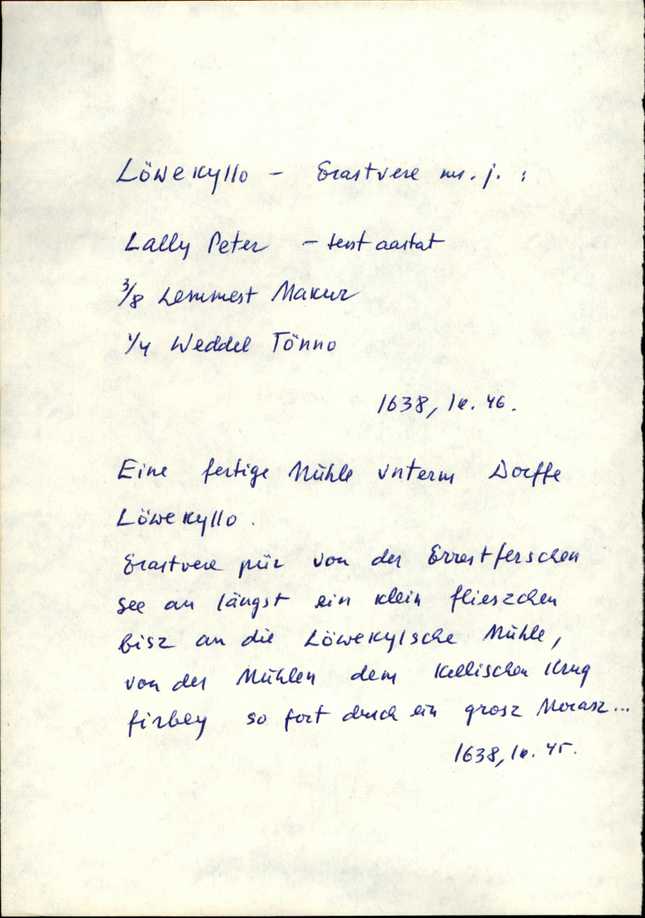 Löwekyllo – Erastvere mr. j. :
Lally Peter – senst aastat
3/8 Lemmest Makur
1/4 Weddel Tönno
1638, lk. 46.
Eine fertige Mühle vnterm Dorffe
Löwekyllo.
Erastvere piir von der Errestferschen
See an längst ein klein flieszchen
bisz an die Löwekylsche Mühle,
von der Mühlen dem Kellischen Krug
firbey so fort durch ein grosz Morasz...
1638, lk. 45.